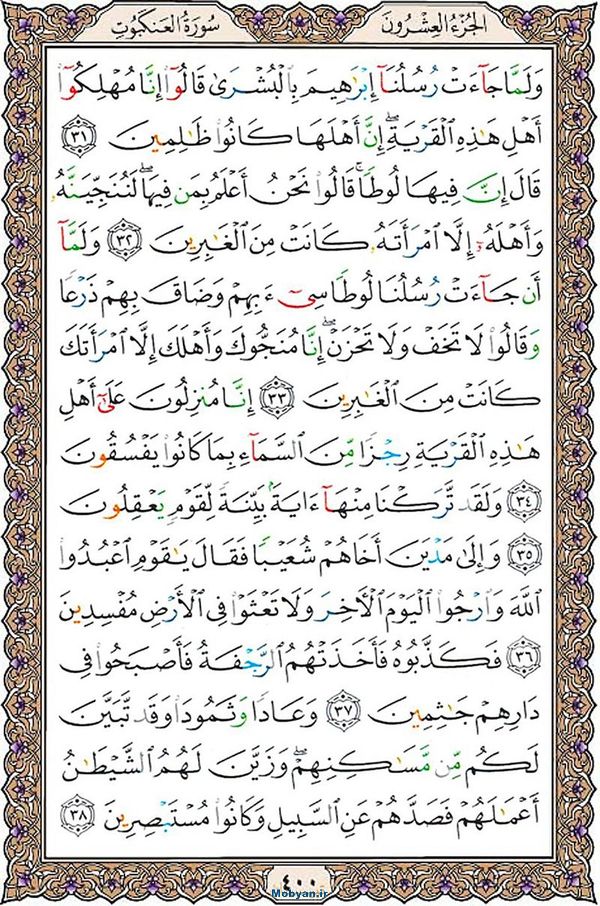 الجُزْءُ العِشْرُونَ
سُورَةُ العَنكَبُوتِ
وَلَمَّا جَآءَتْ رُسُلُنَآ إِبْرَٰهِيمَ بِالْبُشْرَىٰ قَالُوٓا۟ إِنَّا مُهْلِكُوٓا۟
أَهْلِ هَٰذِهِ الْقَرْيَةِ ۖ إِنَّ أَهْلَهَا كَانُوا۟ ظَٰلِمِينَ ٣١
قَالَ إِنَّ فِيهَا لُوطًا ۚ قَالُوا۟ نَحْنُ أَعْلَمُ بِمَن فِيهَا ۖ لَنُنَجِّيَنَّهُۥ
وَأَهْلَهُۥٓ إِلَّا امْرَأَتَهُۥ كَانَتْ مِنَ الْغَٰبِرِينَ ٣٢ وَلَمَّآ
أَن جَآءَتْ رُسُلُنَا لُوطًا سِىٓءَ بِهِمْ وَضَاقَ بِهِمْ ذَرْعًا
وَقَالُوا۟ لَا تَخَفْ وَلَا تَحْزَنْ ۖ إِنَّا مُنَجُّوكَ وَأَهْلَكَ إِلَّا امْرَأَتَكَ
كَانَتْ مِنَ الْغَٰبِرِينَ ٣٣ إِنَّا مُنزِلُونَ عَلَىٰٓ أَهْلِ
هَٰذِهِ الْقَرْيَةِ رِجْزًا مِّنَ السَّمَآءِ بِمَا كَانُوا۟ يَفْسُقُونَ
٣٤ وَلَقَد تَّرَكْنَا مِنْهَآ ءَايَةًۢ بَيِّنَةً لِّقَوْمٍ يَعْقِلُونَ
٣٥ وَإِلَىٰ مَدْيَنَ أَخَاهُمْ شُعَيْبًا فَقَالَ يَٰقَوْمِ اعْبُدُوا۟
اللَّهَ وَارْجُوا۟ الْيَوْمَ الْأَخِرَ وَلَا تَعْثَوْا۟ فِى الْأَرْضِ مُفْسِدِينَ
٣٦ فَكَذَّبُوهُ فَأَخَذَتْهُمُ الرَّجْفَةُ فَأَصْبَحُوا۟ فِى
دَارِهِمْ جَٰثِمِينَ ٣٧ وَعَادًا وَثَمُودَا۟ وَقَد تَّبَيَّنَ
لَكُم مِّن مَّسَٰكِنِهِمْ ۖ وَزَيَّنَ لَهُمُ الشَّيْطَٰنُ
أَعْمَٰلَهُمْ فَصَدَّهُمْ عَنِ السَّبِيلِ وَكَانُوا۟ مُسْتَبْصِرِينَ ٣٨
٤٠٠
Mobyan.ir